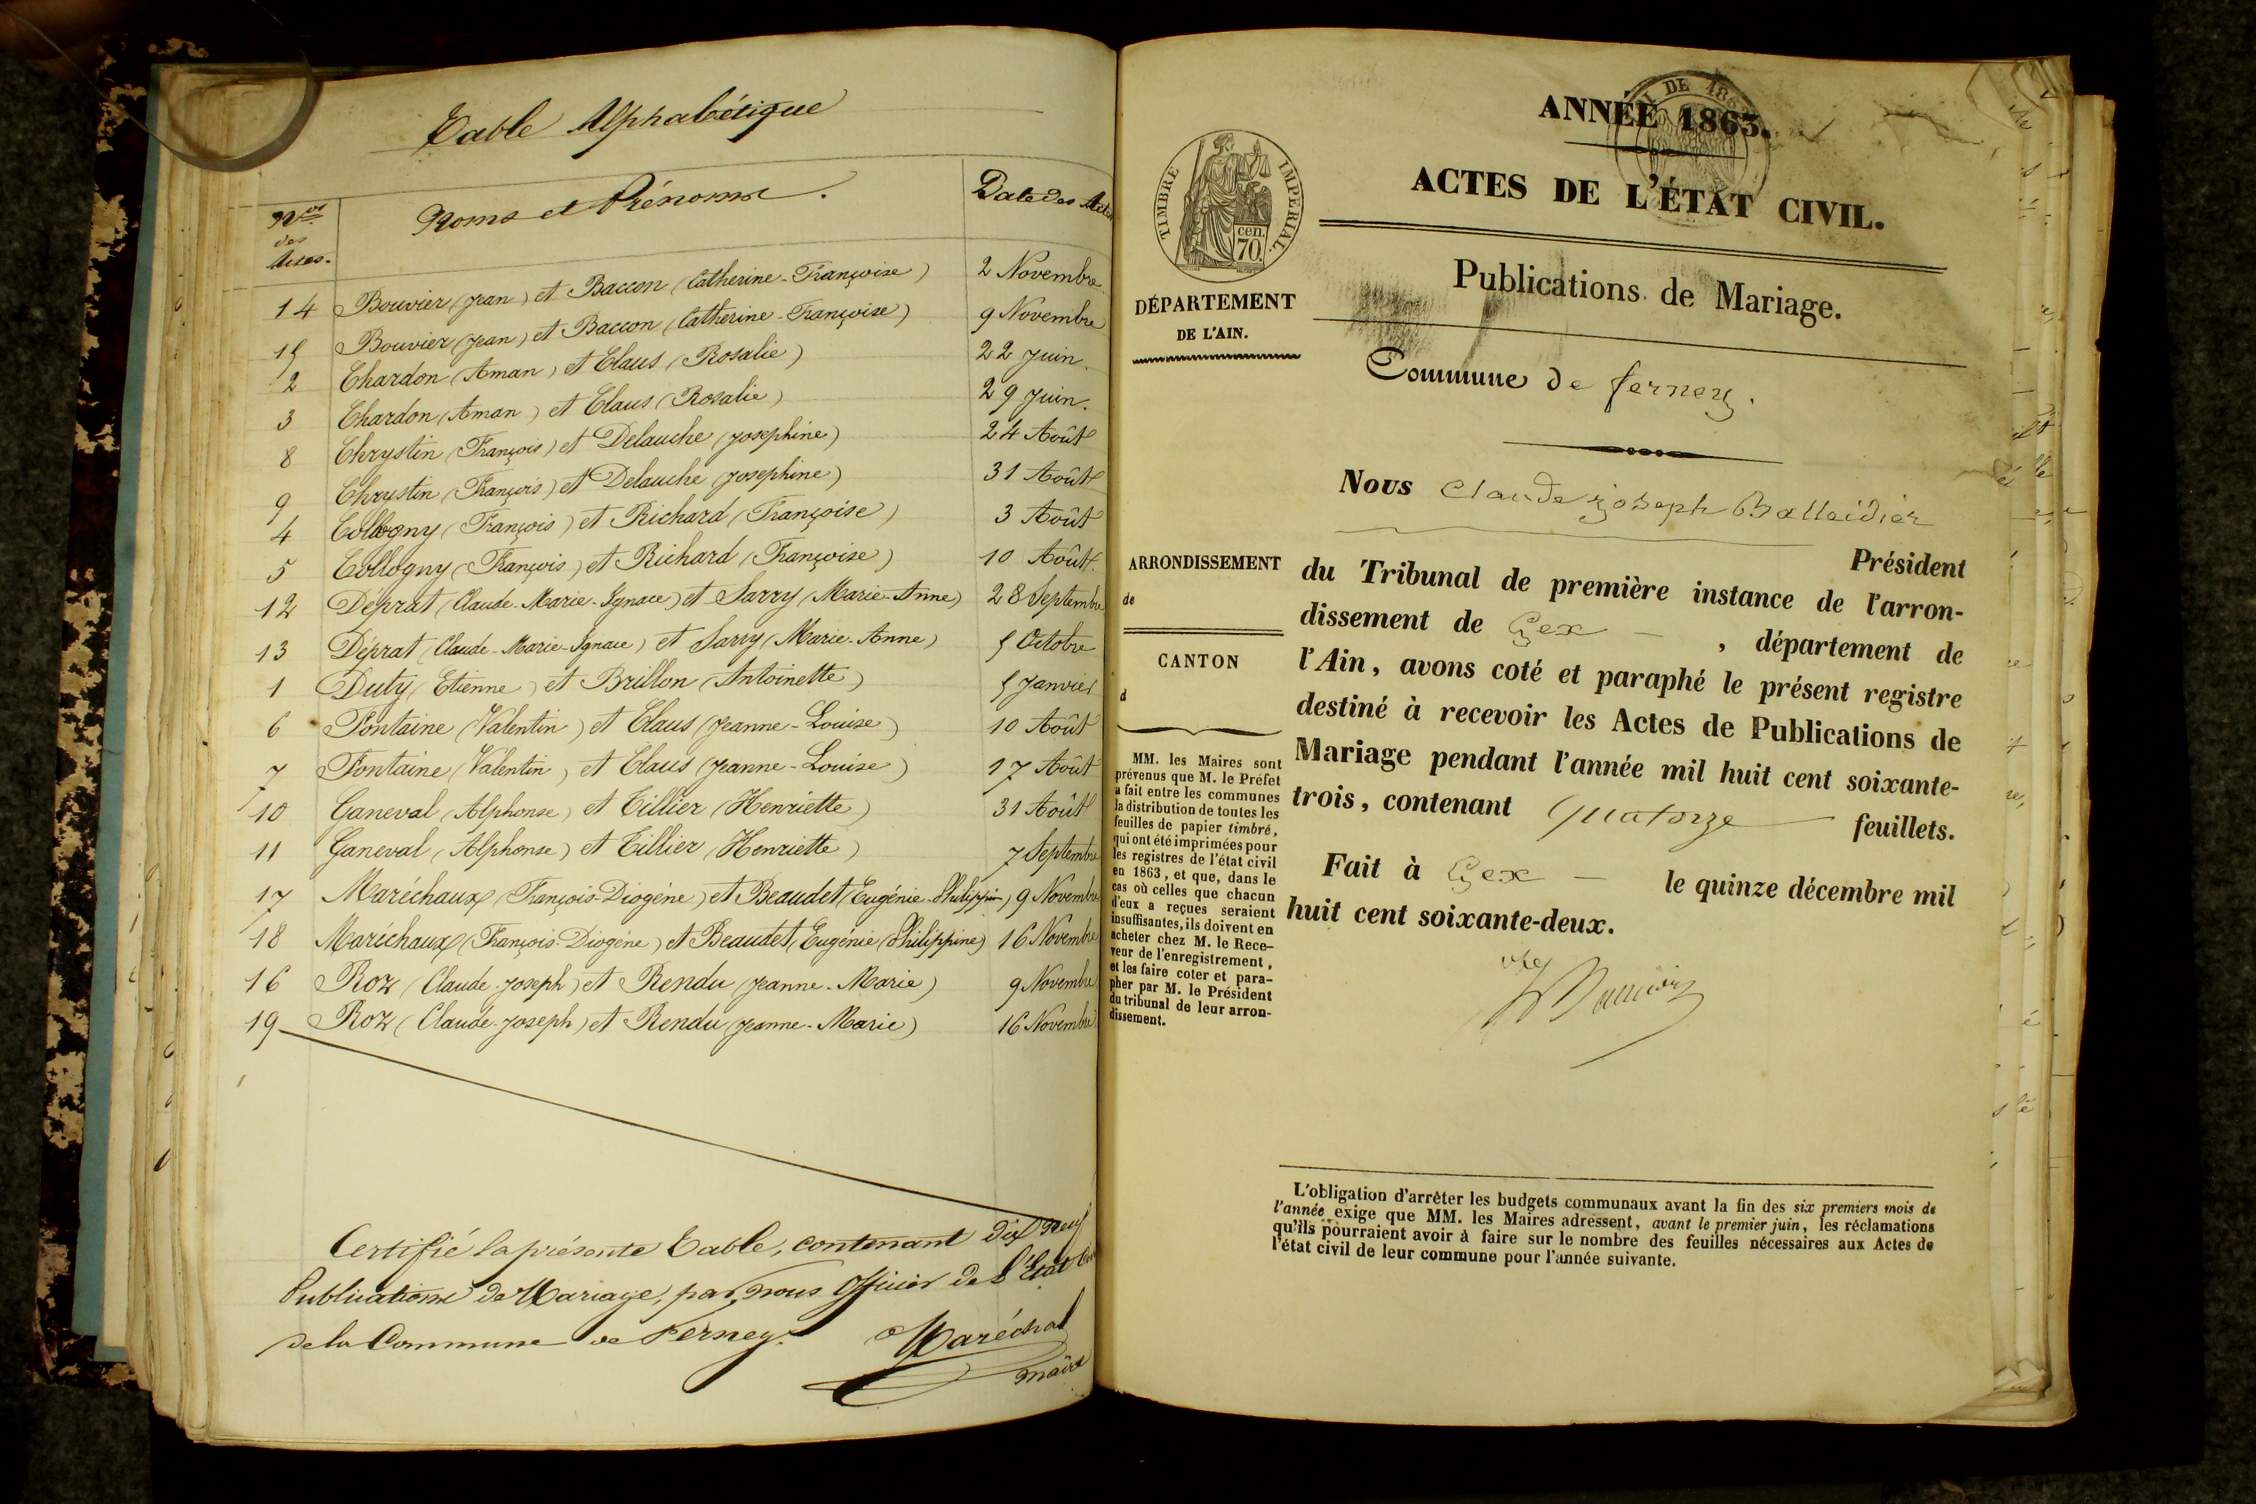 Table Alphabétique
Nos des Actes.
Noms et Prénoms.
Date des Actes
14 Bouvier (Jean) et Baccon (Catherine-Françoise) 2 Novembre
15 Bouvier (Jean) et Baccon (Catherine-Françoise) 9 Novembre
2 Chardon (Aman) et Claus (Rosalie) 22 Juin.
3 Chardon (Aman) et Claus (Rosalie) 29 Juin.
8 Chrystin (François) et Delauche (Josephine) 24 Août
9 Chrystin (François) et Delauche (Josephine) 31 Août
4 Collogny (François) et Richard (Françoise) 3 Août
5 Collogny (François) et Richard (Françoise) 10 Août.
12 Déprat (Claude-Marie-Ignace) et Sarry (Marie-Anne) 28 Septembre
13 Déprat (Claude-Marie-Ignace) et Sarry (Marie-Anne) 5 Octobre
1 Duty (Etienne) et Brillon (Antoinette) 5 Janvier
6 Fontaine (Valentin) et Claus (Jeanne-Louise) 10 Août
7 Fontaine (Valentin) et Claus (Jeanne-Louise) 17 Août
10 Ganeval (Alphonse) et Tillier (Henriette) 31 Août
11 Ganeval (Alphonse) et Tillier (Henriette) 7 Septembre
17 Maréchaux (François-Diogéne) et Beaudet (Eugénie-Philippin) 9 Novembre
18 Maréchaux (François-Diogéne) et Beaudet (Eugénie Philippine) 16 Novembre
16 Roz (Claude-Joseph) et Rendu (Jeanne-Marie) 9 Novembre
19 Roz (Claude-Joseph) et Rendu (Jeanne-Marie) 16 Novembre
Certifié la présente Table, contenant dix neuf
Publications de Mariage, par nous Officier de l'Etat
de la Commune de Ferney.
Maréchal
maire
ANNÉE 1863.
TIMBRE IMPÉRIAL.
cen.
70.
ACTES DE L'ÉTAT CIVIL.
Publications de Mariage.
DÉPARTEMENT
DE L'AIN.
Commune de ferney.
Nous Claude joseph Balleidier
Président
ARRONDISSEMENT
de
CANTON
d
du Tribunal de première instance de l'arron-
dissement de Gex , département de
l'Ain, avons coté et paraphé le présent registre
destiné à recevoir les Actes de Publications de
Mariage pendant l'année mil huit cent soixante-
trois, contenant quatorze feuillets.
Fait à Gex le quinze décembre mil
huit cent soixante-deux.
MM. les Maires sont
prévenus que M. le Préfet
a fait entre les communes
la distribution de toutes les
feuilles de papier timbré,
qui ont été imprimées pour
les registres de l'état civil
en 1863, et que, dans le
cas où celles que chacun
d'eux a reçues seraient
insuffisantes, ils doivent en
acheter chez M. le Rece-
veur de l'enregistrement,
et les faire coter et para-
pher par M. le Président
du tribunal de leur arron-
dissement.
L'obligation d'arrêter les budgets communaux avant la fin des six premiers mois de
l'année exige que MM. les Maires adressent, avant le premier juin, les réclamations
qu'ils pourraient avoir à faire sur le nombre des feuilles nécessaires aux Actes de
l'état civil de leur commune pour l'année suivante.